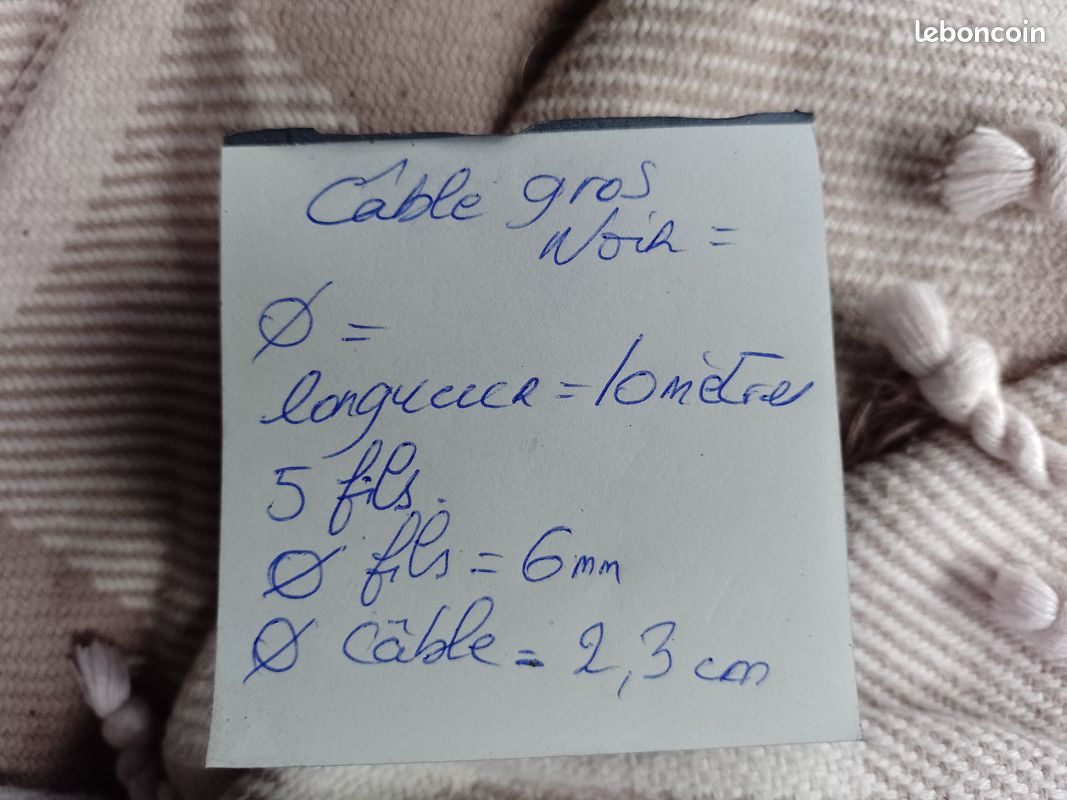 leboncoin
Câble gros
Noir =
Ø =
longueur = 10 mètres
5 fils.
Ø fils = 6 mm
Ø câble = 2,3 cm